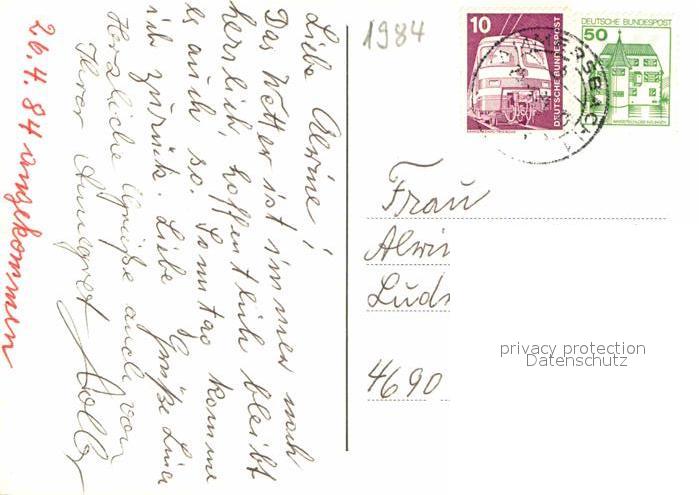 Liebe Alwine!
Das Wetter ist immer noch
herrlich, hoffentlich bleibt
es auch so. Sonntag komme
ich zurück. Liebe Grüße
Herzliche Grüße auch von
Ihrer Annegret
26.4.84 angekommen
1984
10
DEUTSCHE BUNDESPOST
DEUTSCHE BUNDESPOST
50
Frau
Alwi
Luds
4690
privacy protection
Datenschutz